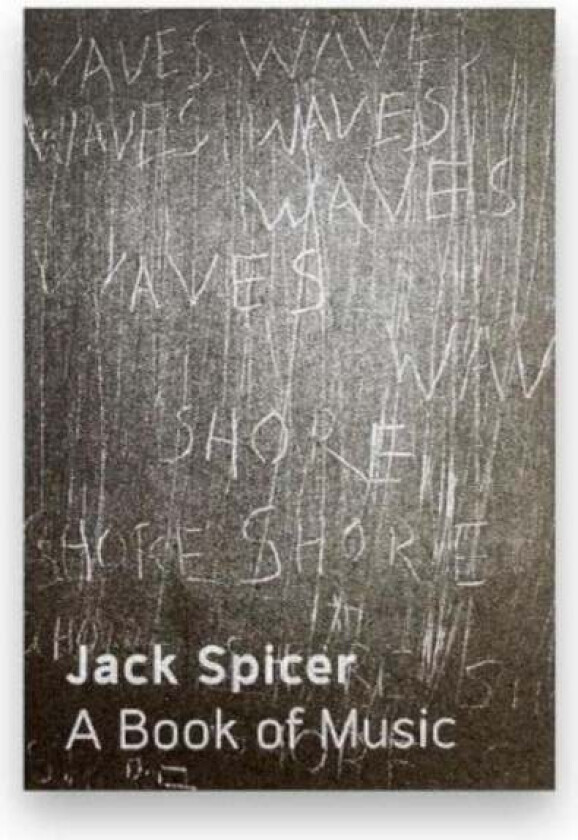 WAVES WAVE
WAVES WAVES
WAVES
WAVES
WAV
SHORE
SHORE SHORE
Jack Spicer
A Book of Music